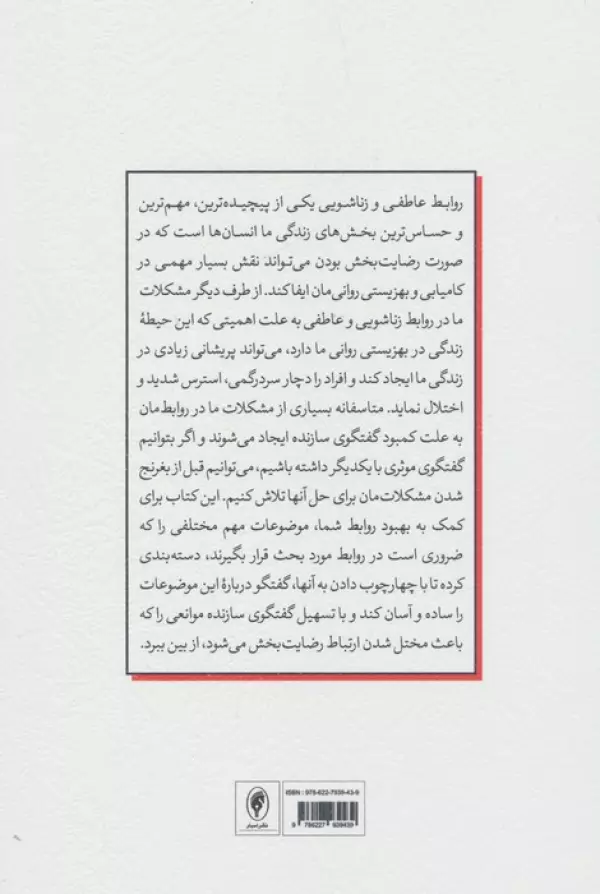 روابط عاطفی و زناشویی یکی از پیچیده‌ترین، مهم‌ترین
و حساس‌ترین بخش‌های زندگی ما انسان‌ها است که در
صورت رضایت‌بخش بودن می‌تواند نقش بسیار مهمی در
کامیابی و بهزیستی روانی‌مان ایفا کند. از طرف دیگر مشکلات
ما در روابط زناشویی و عاطفی به علت اهمیتی که این حیطۀ
زندگی در بهزیستی روانی ما دارد، می‌تواند پریشانی زیادی در
زندگی ما ایجاد کند و افراد را دچار سردرگمی، استرس شدید و
اختلال نماید. متاسفانه بسیاری از مشکلات ما در روابط‌مان
به علت کمبود گفتگوی سازنده ایجاد می‌شوند و اگر بتوانیم
گفتگوی موثری با یکدیگر داشته باشیم، می‌توانیم قبل از بغرنج
شدن مشکلات‌مان برای حل آنها تلاش کنیم. این کتاب برای
کمک به بهبود روابط شما، موضوعات مهم مختلفی را که
ضروری است در روابط مورد بحث قرار بگیرند، دسته‌بندی
کرده تا با چهارچوب دادن به آنها، گفتگو دربارۀ این موضوعات
را ساده و آسان کند و با تسهیل گفتگوی سازنده موانعی را که
باعث مختل شدن ارتباط رضایت‌بخش می‌شود، از بین ببرد.
ISBN : 978-622-7939-43-9
9 786227 939439